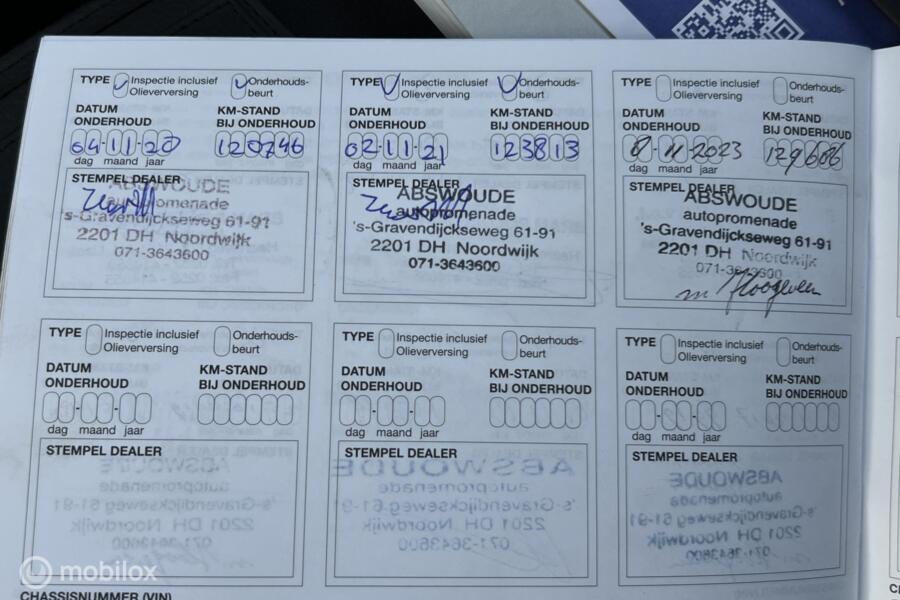 TYPE Inspectie inclusief Olieverversing Onderhouds-beurt
DATUM ONDERHOUD KM-STAND BIJ ONDERHOUD
04-11-20 120746
dag maand jaar
STEMPEL DEALER
ABSWOUDE
autopromenade
's-Gravendijckseweg 61-91
2201 DH Noordwijk
071-3643600
TYPE Inspectie inclusief Olieverversing Onderhouds-beurt
DATUM ONDERHOUD KM-STAND BIJ ONDERHOUD
02-11-21 123813
dag maand jaar
STEMPEL DEALER
ABSWOUDE
autopromenade
's-Gravendijckseweg 61-91
2201 DH Noordwijk
071-3643600
TYPE Inspectie inclusief Olieverversing Onderhouds-beurt
DATUM ONDERHOUD KM-STAND BIJ ONDERHOUD
8-11-2023 129686
dag maand jaar
STEMPEL DEALER
ABSWOUDE
autopromenade
's-Gravendijckseweg 61-91
2201 DH Noordwijk
071-3643600
TYPE Inspectie inclusief Olieverversing Onderhouds-beurt
DATUM ONDERHOUD KM-STAND BIJ ONDERHOUD
dag maand jaar
STEMPEL DEALER
TYPE Inspectie inclusief Olieverversing Onderhouds-beurt
DATUM ONDERHOUD KM-STAND BIJ ONDERHOUD
dag maand jaar
STEMPEL DEALER
TYPE Inspectie inclusief Olieverversing Onderhouds-beurt
DATUM ONDERHOUD KM-STAND BIJ ONDERHOUD
dag maand jaar
STEMPEL DEALER
CHASSISNUMMER (VIN)
mobilox